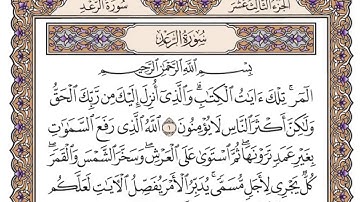 الجزء الثالث عشر
سورة الرعد
سورة الرعد
بسم الله الرحمن الرحيم
الٓمٓرۚ تِلْكَ ءَايَٰتُ ٱلْكِتَٰبِۗ وَٱلَّذِىٓ أُنزِلَ إِلَيْكَ مِن رَّبِّكَ ٱلْحَقُّ
وَلَٰكِنَّ أَكْثَرَ ٱلنَّاسِ لَا يُؤْمِنُونَ ١ ٱللَّهُ ٱلَّذِى رَفَعَ ٱلسَّمَٰوَٰتِ
بِغَيْرِ عَمَدٍ تَرَوْنَهَاۖ ثُمَّ ٱسْتَوَىٰ عَلَى ٱلْعَرْشِۖ وَسَخَّرَ ٱلشَّمْسَ وَٱلْقَمَرَۖ
كُلٌّ يَجْرِى لِأَجَلٍ مُّسَمًّىۚ يُدَبِّرُ ٱلْأَمْرَ يُفَصِّلُ ٱلْءَايَٰتِ لَعَلَّكُم